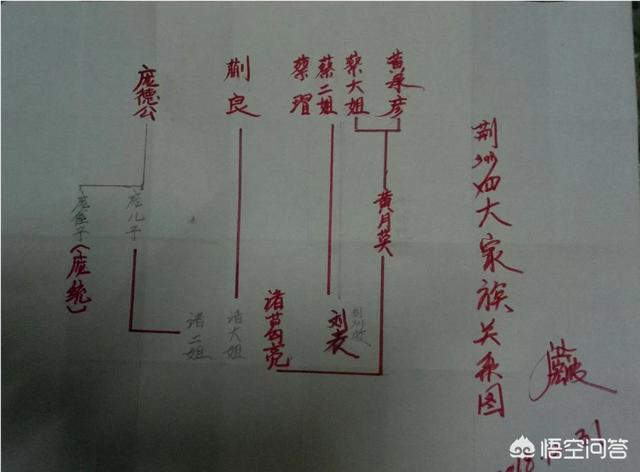 荆州四大家族关系图
黄承彦
蔡大姐
蔡二姐
蔡瑁
蒯良
庞德公
黄月英
庞儿子
庞侄子(庞统)
荆州牧
刘表
诸葛亮
诸大姐
诸二姐
悟空问答